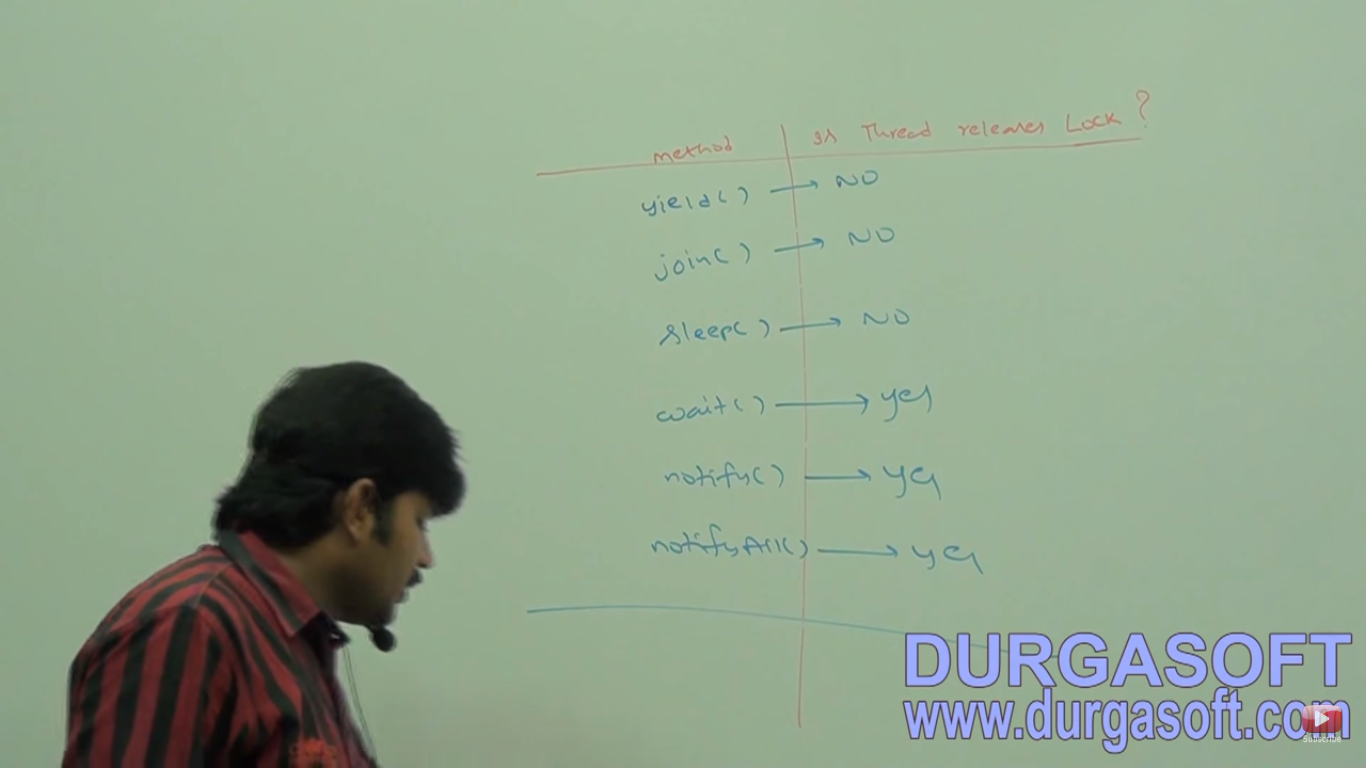 method Is Thread releases Lock?
yield() → NO
join() → NO
sleep() → NO
wait() → yes
notify() → yes
notifyAll() → yes
DURGASOFT
www.durgasoft.com
SUBSCRIBE